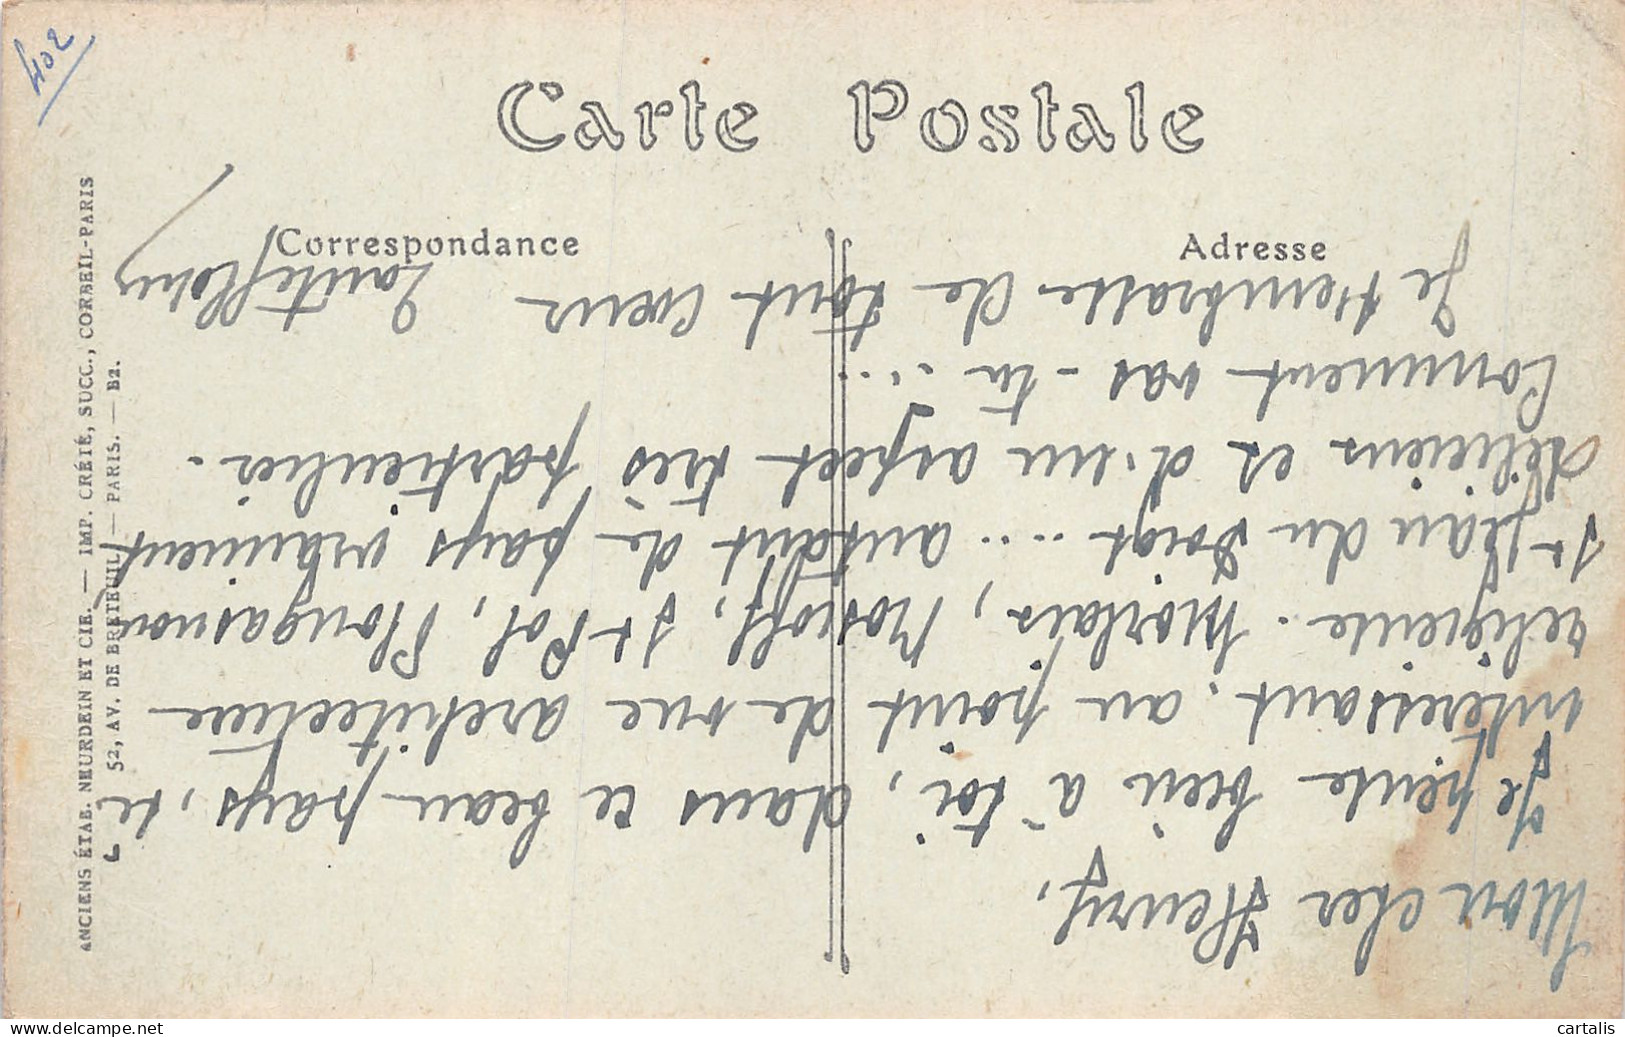 402
Carte Postale
Correspondance
Adresse
ANCIENS ÉTAB. NEURDEIN ET CIE. — IMP. CRÉTÉ, SUCC., CORBEIL-PARIS
52, AV. DE BRETEUIL — PARIS. — B2.
Mon cher Henry,
Je pense bien à toi, dans ce beau pays, si
intéressant au point de vue architecture
religieuse. Morlaix, Roscoff, St Pol, Plougasnou
St Jean du Doigt .... autant de pays vraiment
délicieux et d'un aspect très particulier.
Comment vas-tu ....
Je t'embrasse de tout coeur
delcampe.net
cartalis